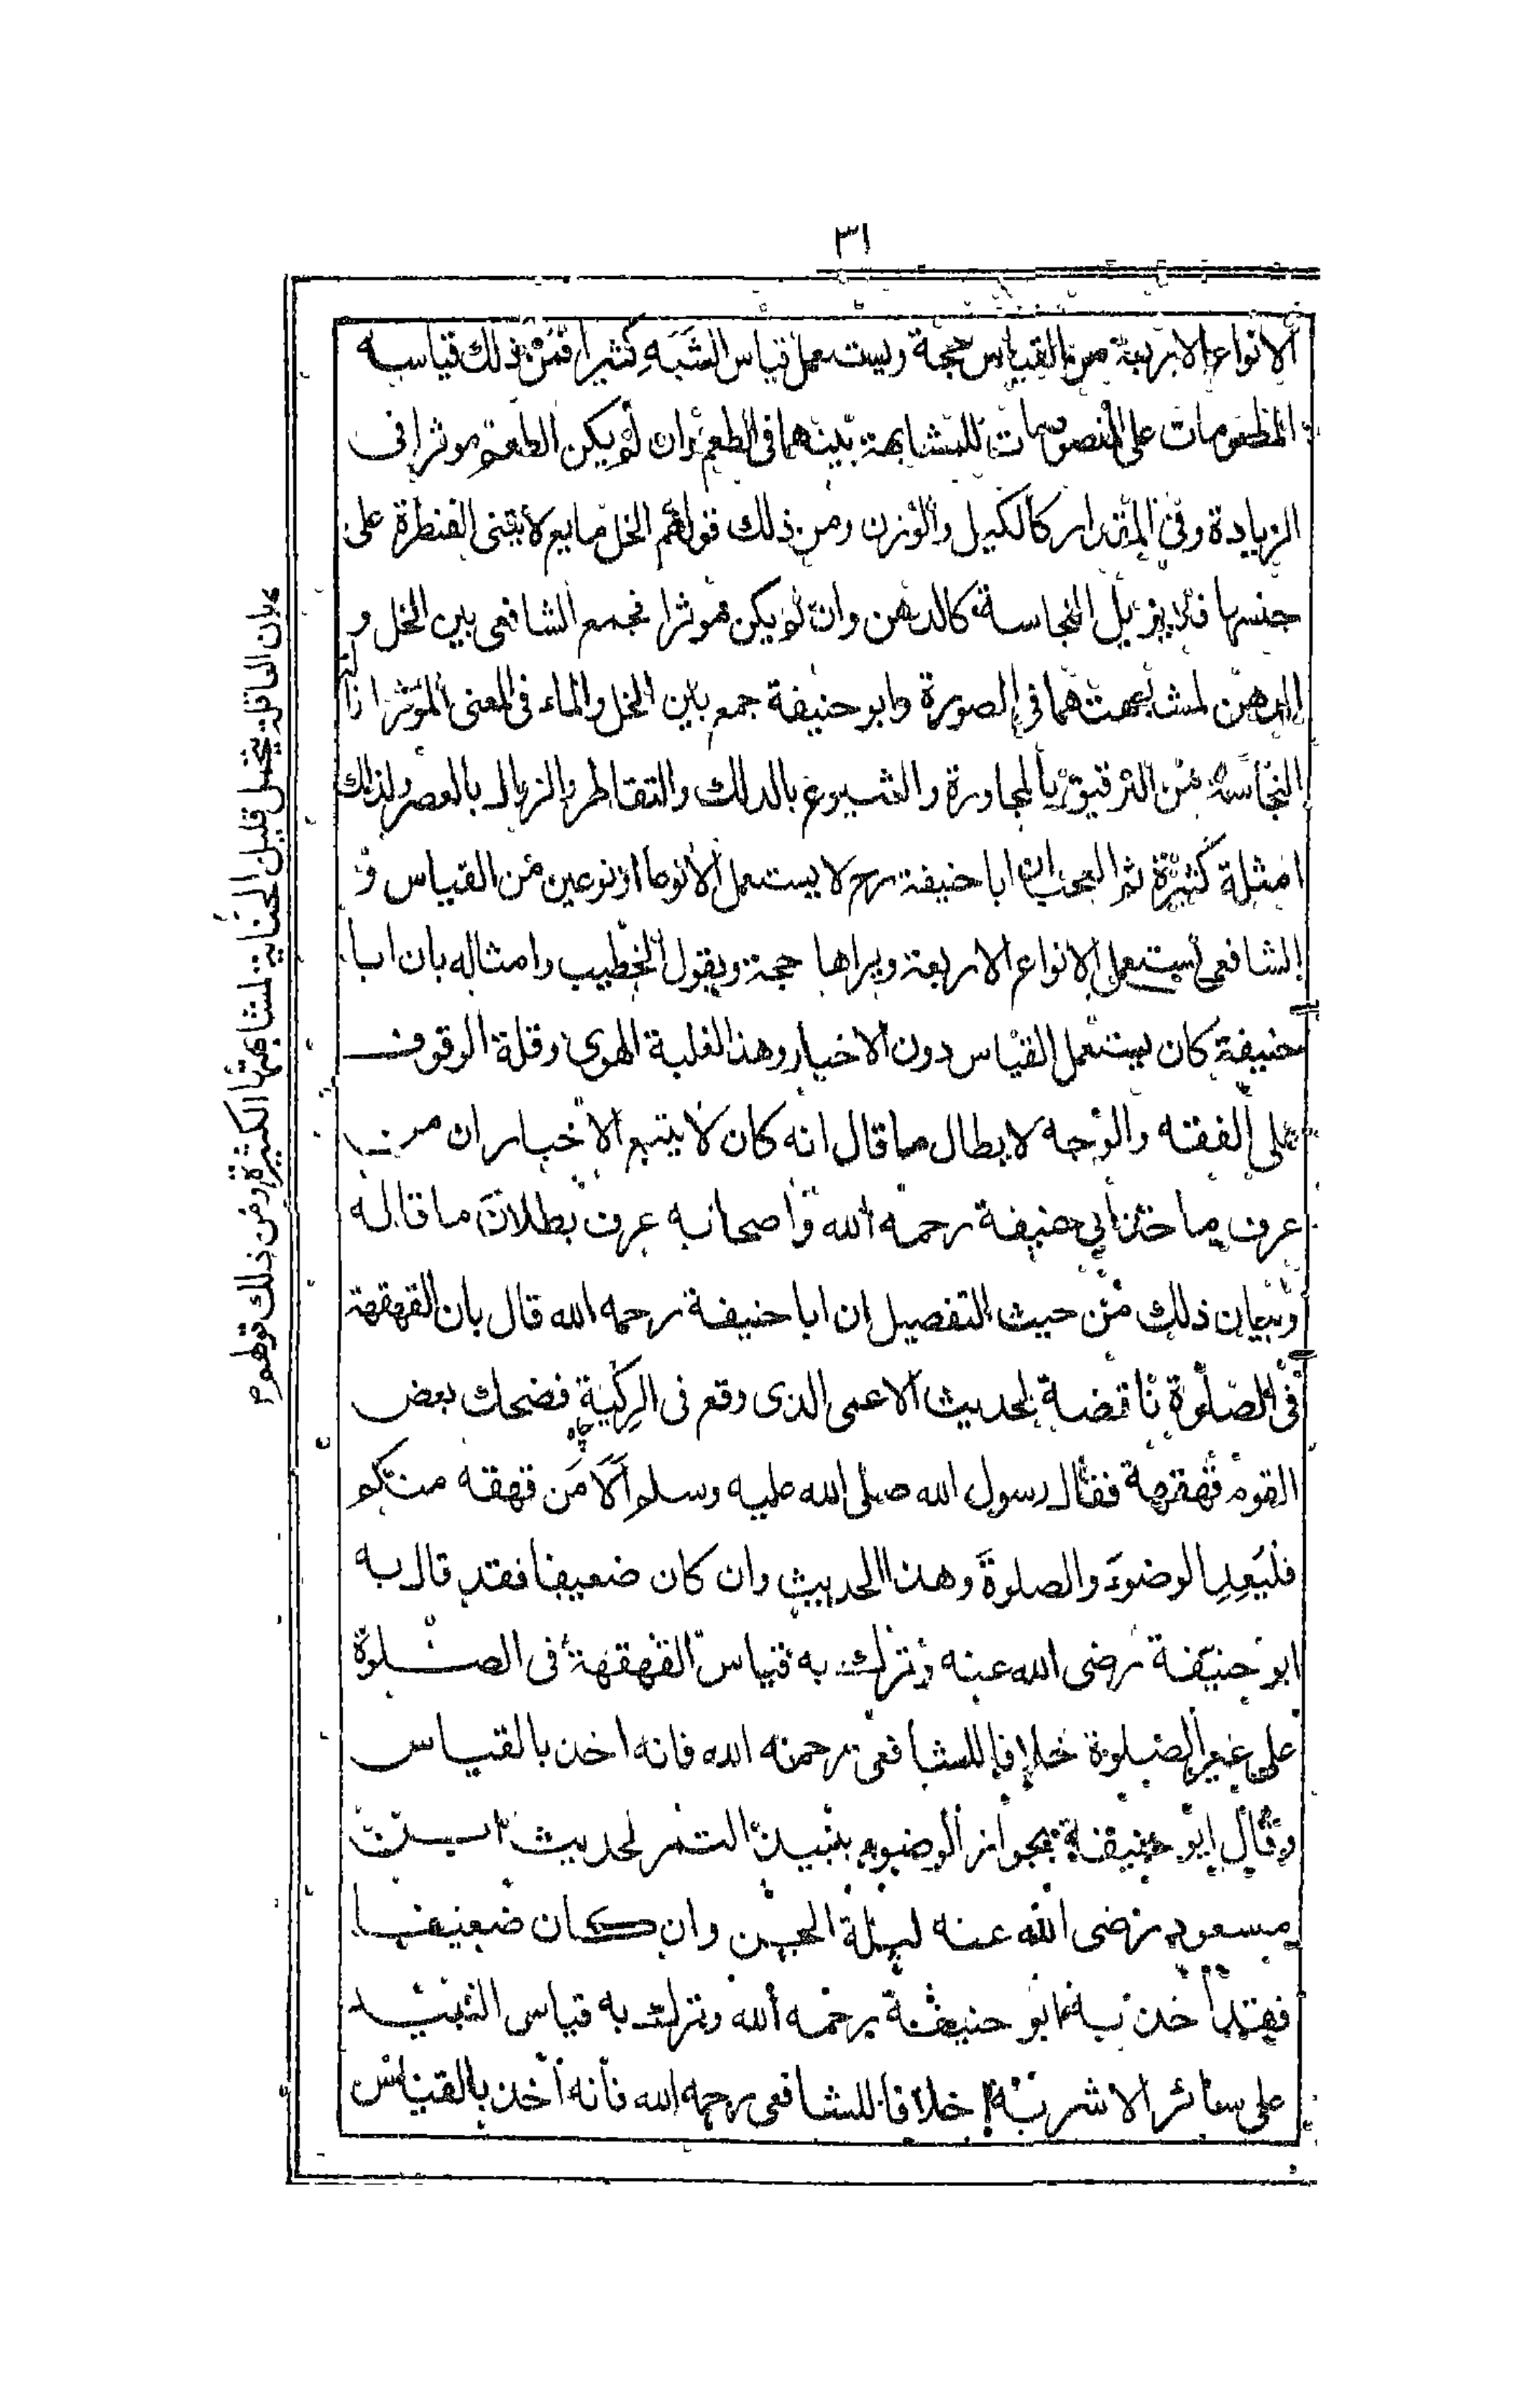 ٣١
الانواع الاربعة من القياس حجة ويستعمل قياس الشَبَهِ كثيرا فمن ذلك قياسه
المطعومات على المنصوصات للمشابهة بينهما فى الطعم وان لم يكن الطعم موثرا فى
الزيادة وفى المقدار كالكيل والوزن ومن ذلك قولهم الخل مايع لا يبتنى القنطرة على
جنسها فلا يزيل النجاسة كالدهن وان لم يكن موثرا فجمع الشافعى بين الخل و
الدهن لمشابهتهما فى الصورة وابو حنيفة جمع بين الخل والماء فى المعنى المؤثر
النجاسة من الترقيق بالمجاورة والشيوع بالدلك والتقاطر والزوال بالعصر ولذلك
امثلة كثيرة ثم العجب ان ابا حنيفة رح لا يستعمل الا نوعا او نوعين من القياس و
الشافعى يستعمل الانواع الاربعة ويراها حجة ويقول الخطيب وامثاله بان ابا
حنيفة كان يستعمل القياس دون الاخبار وهذا لغلبة الهوى وقلة الوقوف
على الفقه والوجه لابطال ما قال انه كان لا يتبع الاخبار ان من
عرف ماخذ ابي حنيفة رحمه الله واصحابه عرف بطلان ما قاله
وبيان ذلك من حيث التفصيل ان ابا حنيفة رحمه الله قال بان القهقهة
فى الصلوة ناقضة لحديث الاعمى الذى وقع فى الركية فضحك بعض
چاه
القوم قهقهة فقال رسول الله صلى الله عليه وسلم اَلَا مَن قهقه منكم
فليُعِدِ الوضوءَ والصلوةَ وهذا الحديث وان كان ضعيفا فقد قال به
ابو حنيفة رضى الله عنه وترك به قياس القهقهة فى الصلوة
على غير الصلوة خلافا للشافعى رحمه الله فانه اخذ بالقياس
وقال ابو حنيفة بجواز الوضوء بنبيذ التمر لحديث ابن
مسعود رضى الله عنه ليلة الجن وان كان ضعيفا
فقد اخذ به ابو حنيفة رحمه الله وترك به قياس النبيذ
على سائر الاشربة خلافا للشافعى رحمه الله فانه اخذ بالقياس
بان العاقلة يتحمل قليل الجناية لمشابهتها الكثيرة ومن ذلك قولهم